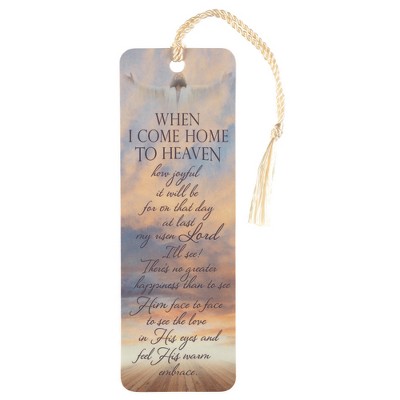 WHEN
I COME HOME
TO HEAVEN
how joyful
it will be
for on that day
at last
my risen Lord
I'll see!
There's no greater
happiness than to see
Him face to face
to see the love
in His eyes and
feel His warm
embrace.